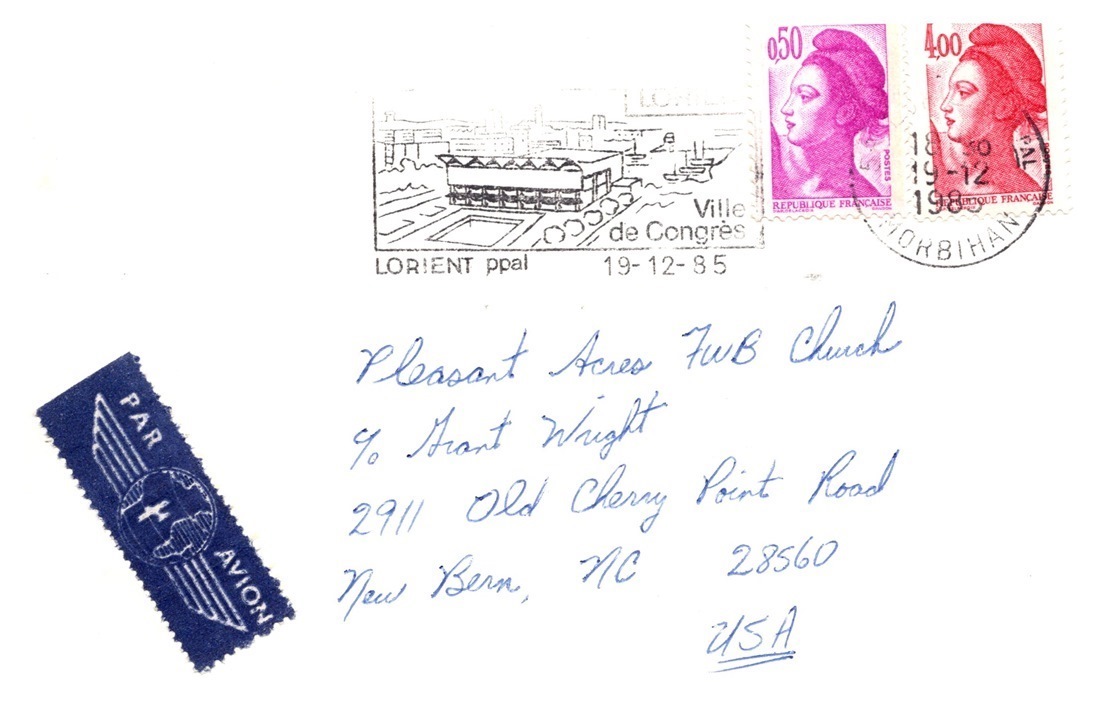 0,50
4,00
LORIENT
POSTES
REPUBLIQUE FRANCAISE
REPUBLIQUE FRANCAISE
18
19-12
MORBIHAN
Ville
de Congrès
LORIENT ppal 19-12-85
Pleasant Acres FWB Church
℅ Grant Wright
2911 Old Cherry Point Road
New Bern, NC 28560
USA
PAR
AVION